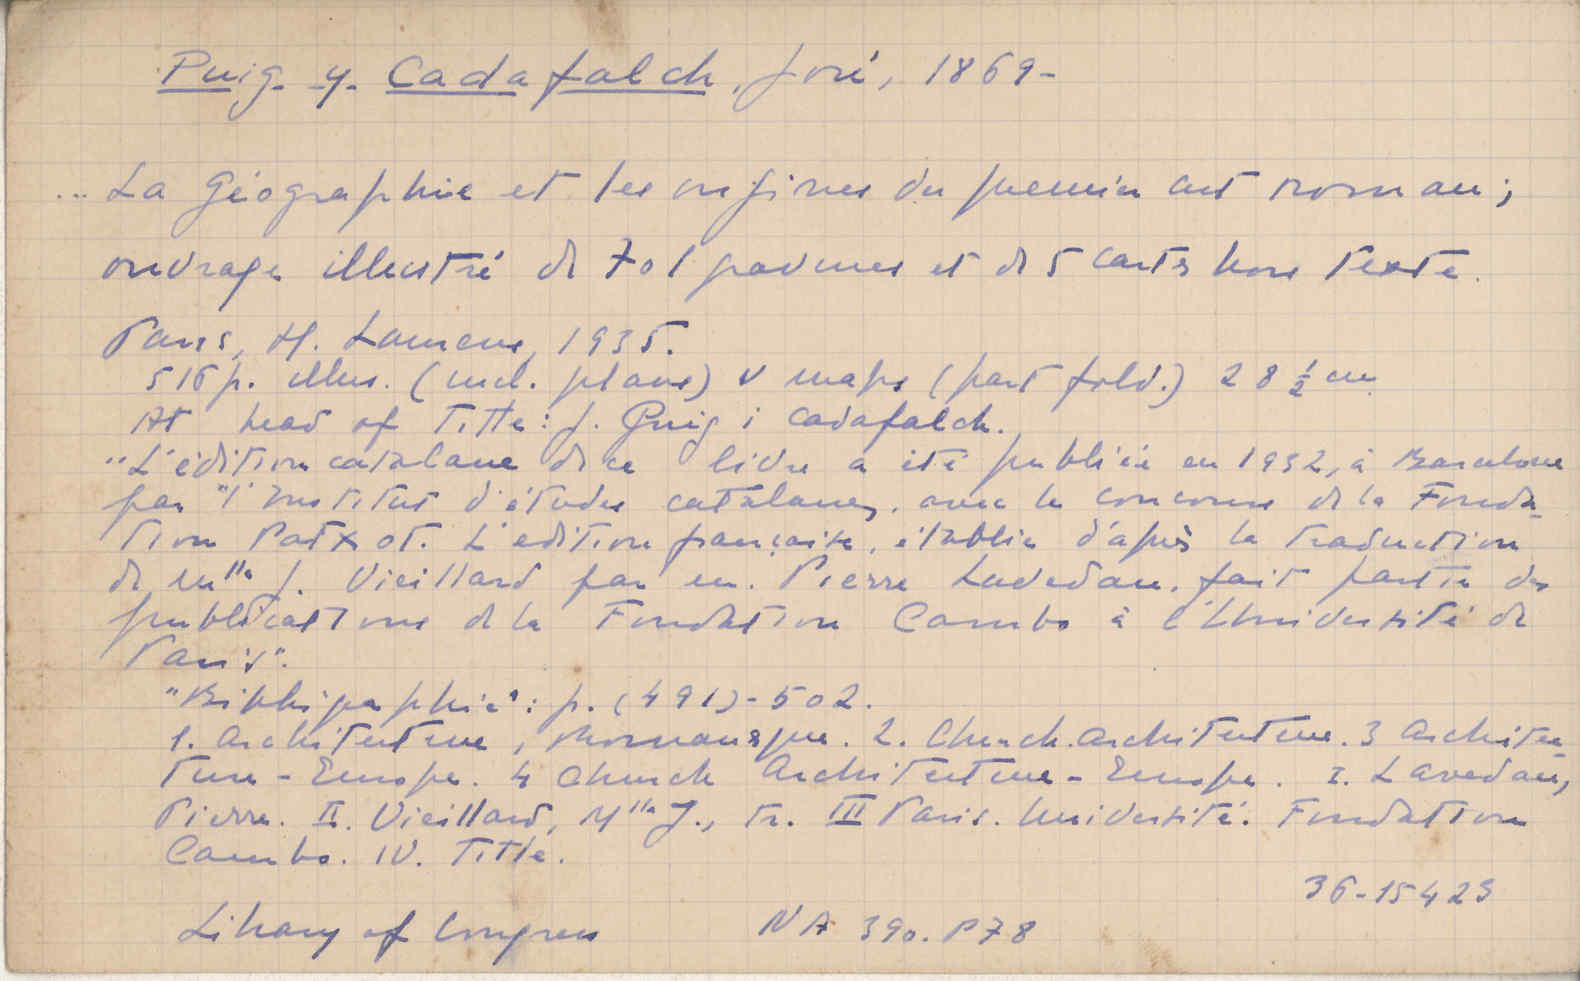 Puig y Cadafalch, José, 1869-
... La Géographie et les origines du premier art roman;
ouvrage illustré de 701 gravures et de 5 cartes hors texte.
Paris, H. Laurens, 1935.
516 p. illus. (incl. plans) V maps (part fold.) 28 ½ cm
At head of title: J. Puig i Cadafalch.
"L'édition catalane de ce livre a été publiée en 1932, à Barcelone
par "l'Institut d'études catalanes, avec le concours de la Fonda-
tion Patxot. L'édition française, établie d'après la traduction
de Mlle J. Vieillard par M. Pierre Lavedan, fait partie des
publications de la Fondation Cambo à l'Université de
Paris".
"Bibliographie": p. (491)-502.
1. Architecture, Romanesque. 2. Church architecture. 3 Architec-
ture - Europe. 4 Church Architecture - Europe. I. Lavedan,
Pierre. II. Vieillard, Mlle J., tr. III Paris. Université. Fondation
Cambo. IV. Title.
36-15423
Library of Congress NA 390.P78